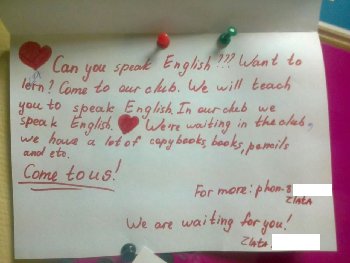 Can you speak English??? Want to
lern? Come to our club. We will teach
you to speak English. In our club we
speak English. We're waiting in the club,
we have a lot of copybooks, books, pencils
and etc.
Come to us!
For more: phon-8
Zlata
We are waiting for you!
Zlata.